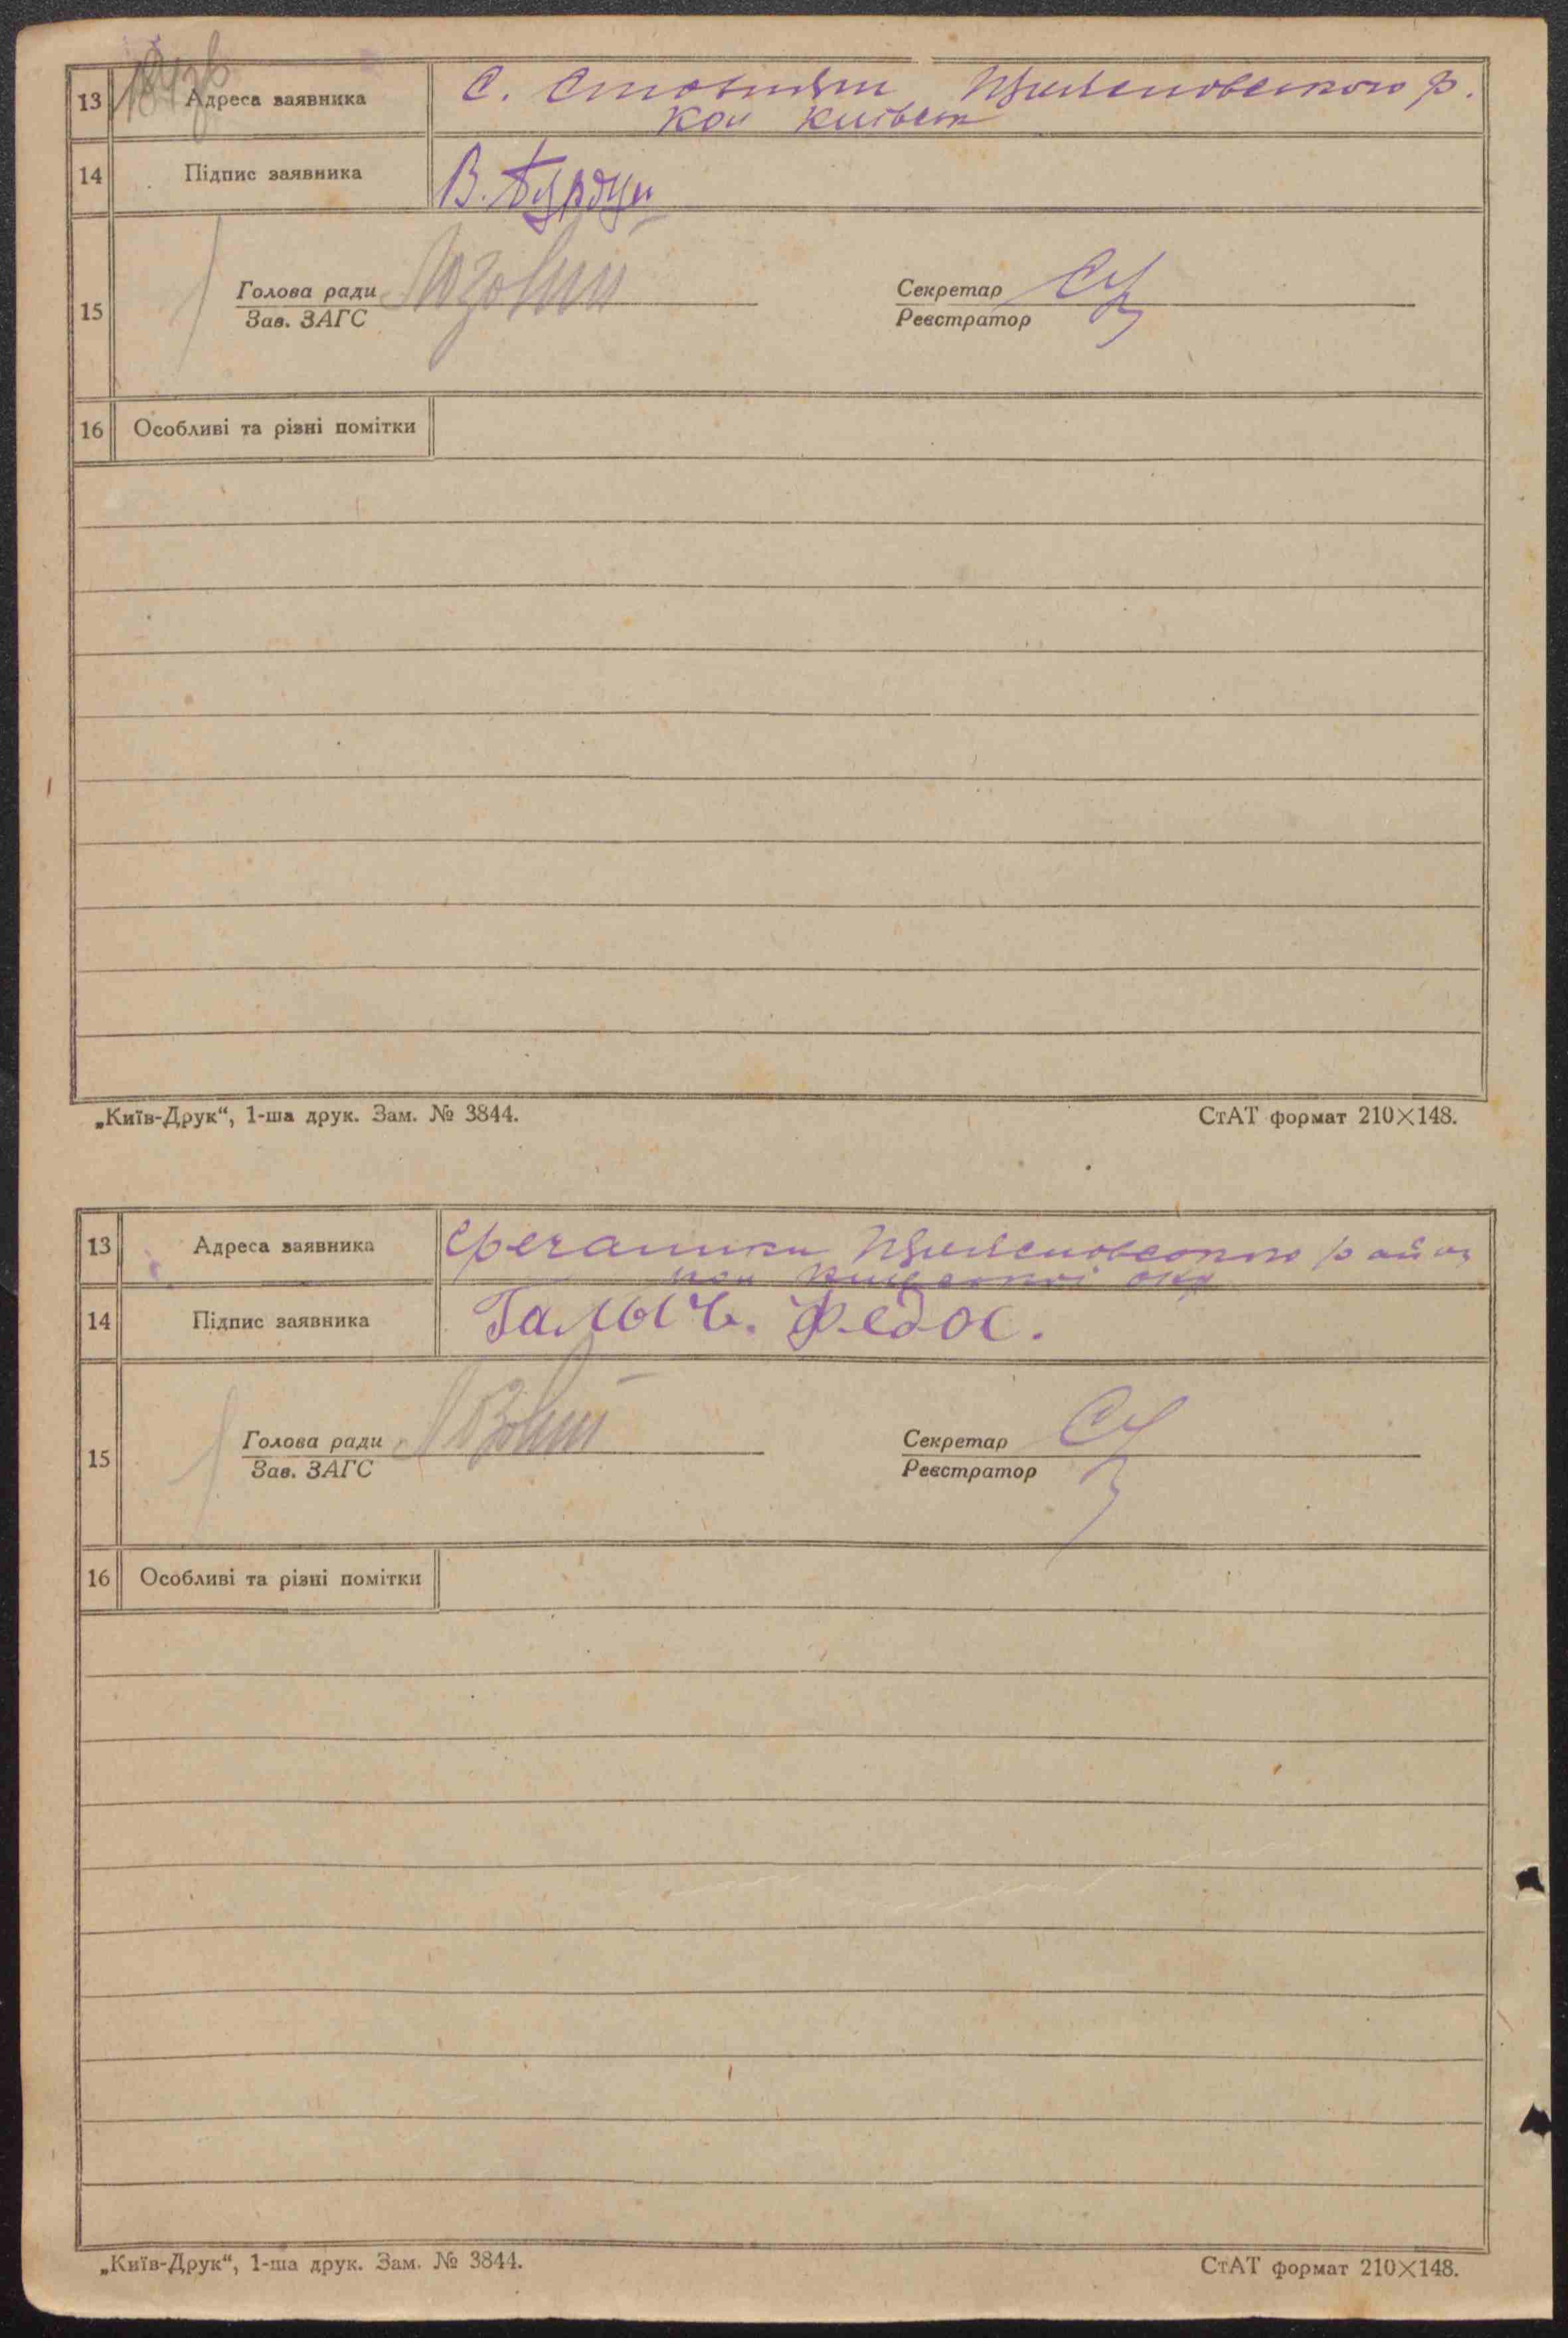 13 Адреса заявника С. Стовпяги
14 Підпис заявника В. Бурдун
15 Голова ради Лозовий Секретар
Зав. ЗАГС Реєстратор
16 Особливі та різні помітки
„Київ-Друк“, 1-ша друк. Зам. № 3844. СтАТ формат 210×148.
13 Адреса заявника району
14 Підпис заявника Галыч. Федос.
15 Голова ради Лозовий Секретар
Зав. ЗАГС Реєстратор
16 Особливі та різні помітки
„Київ-Друк“, 1-ша друк. Зам. № 3844. СтАТ формат 210×148.